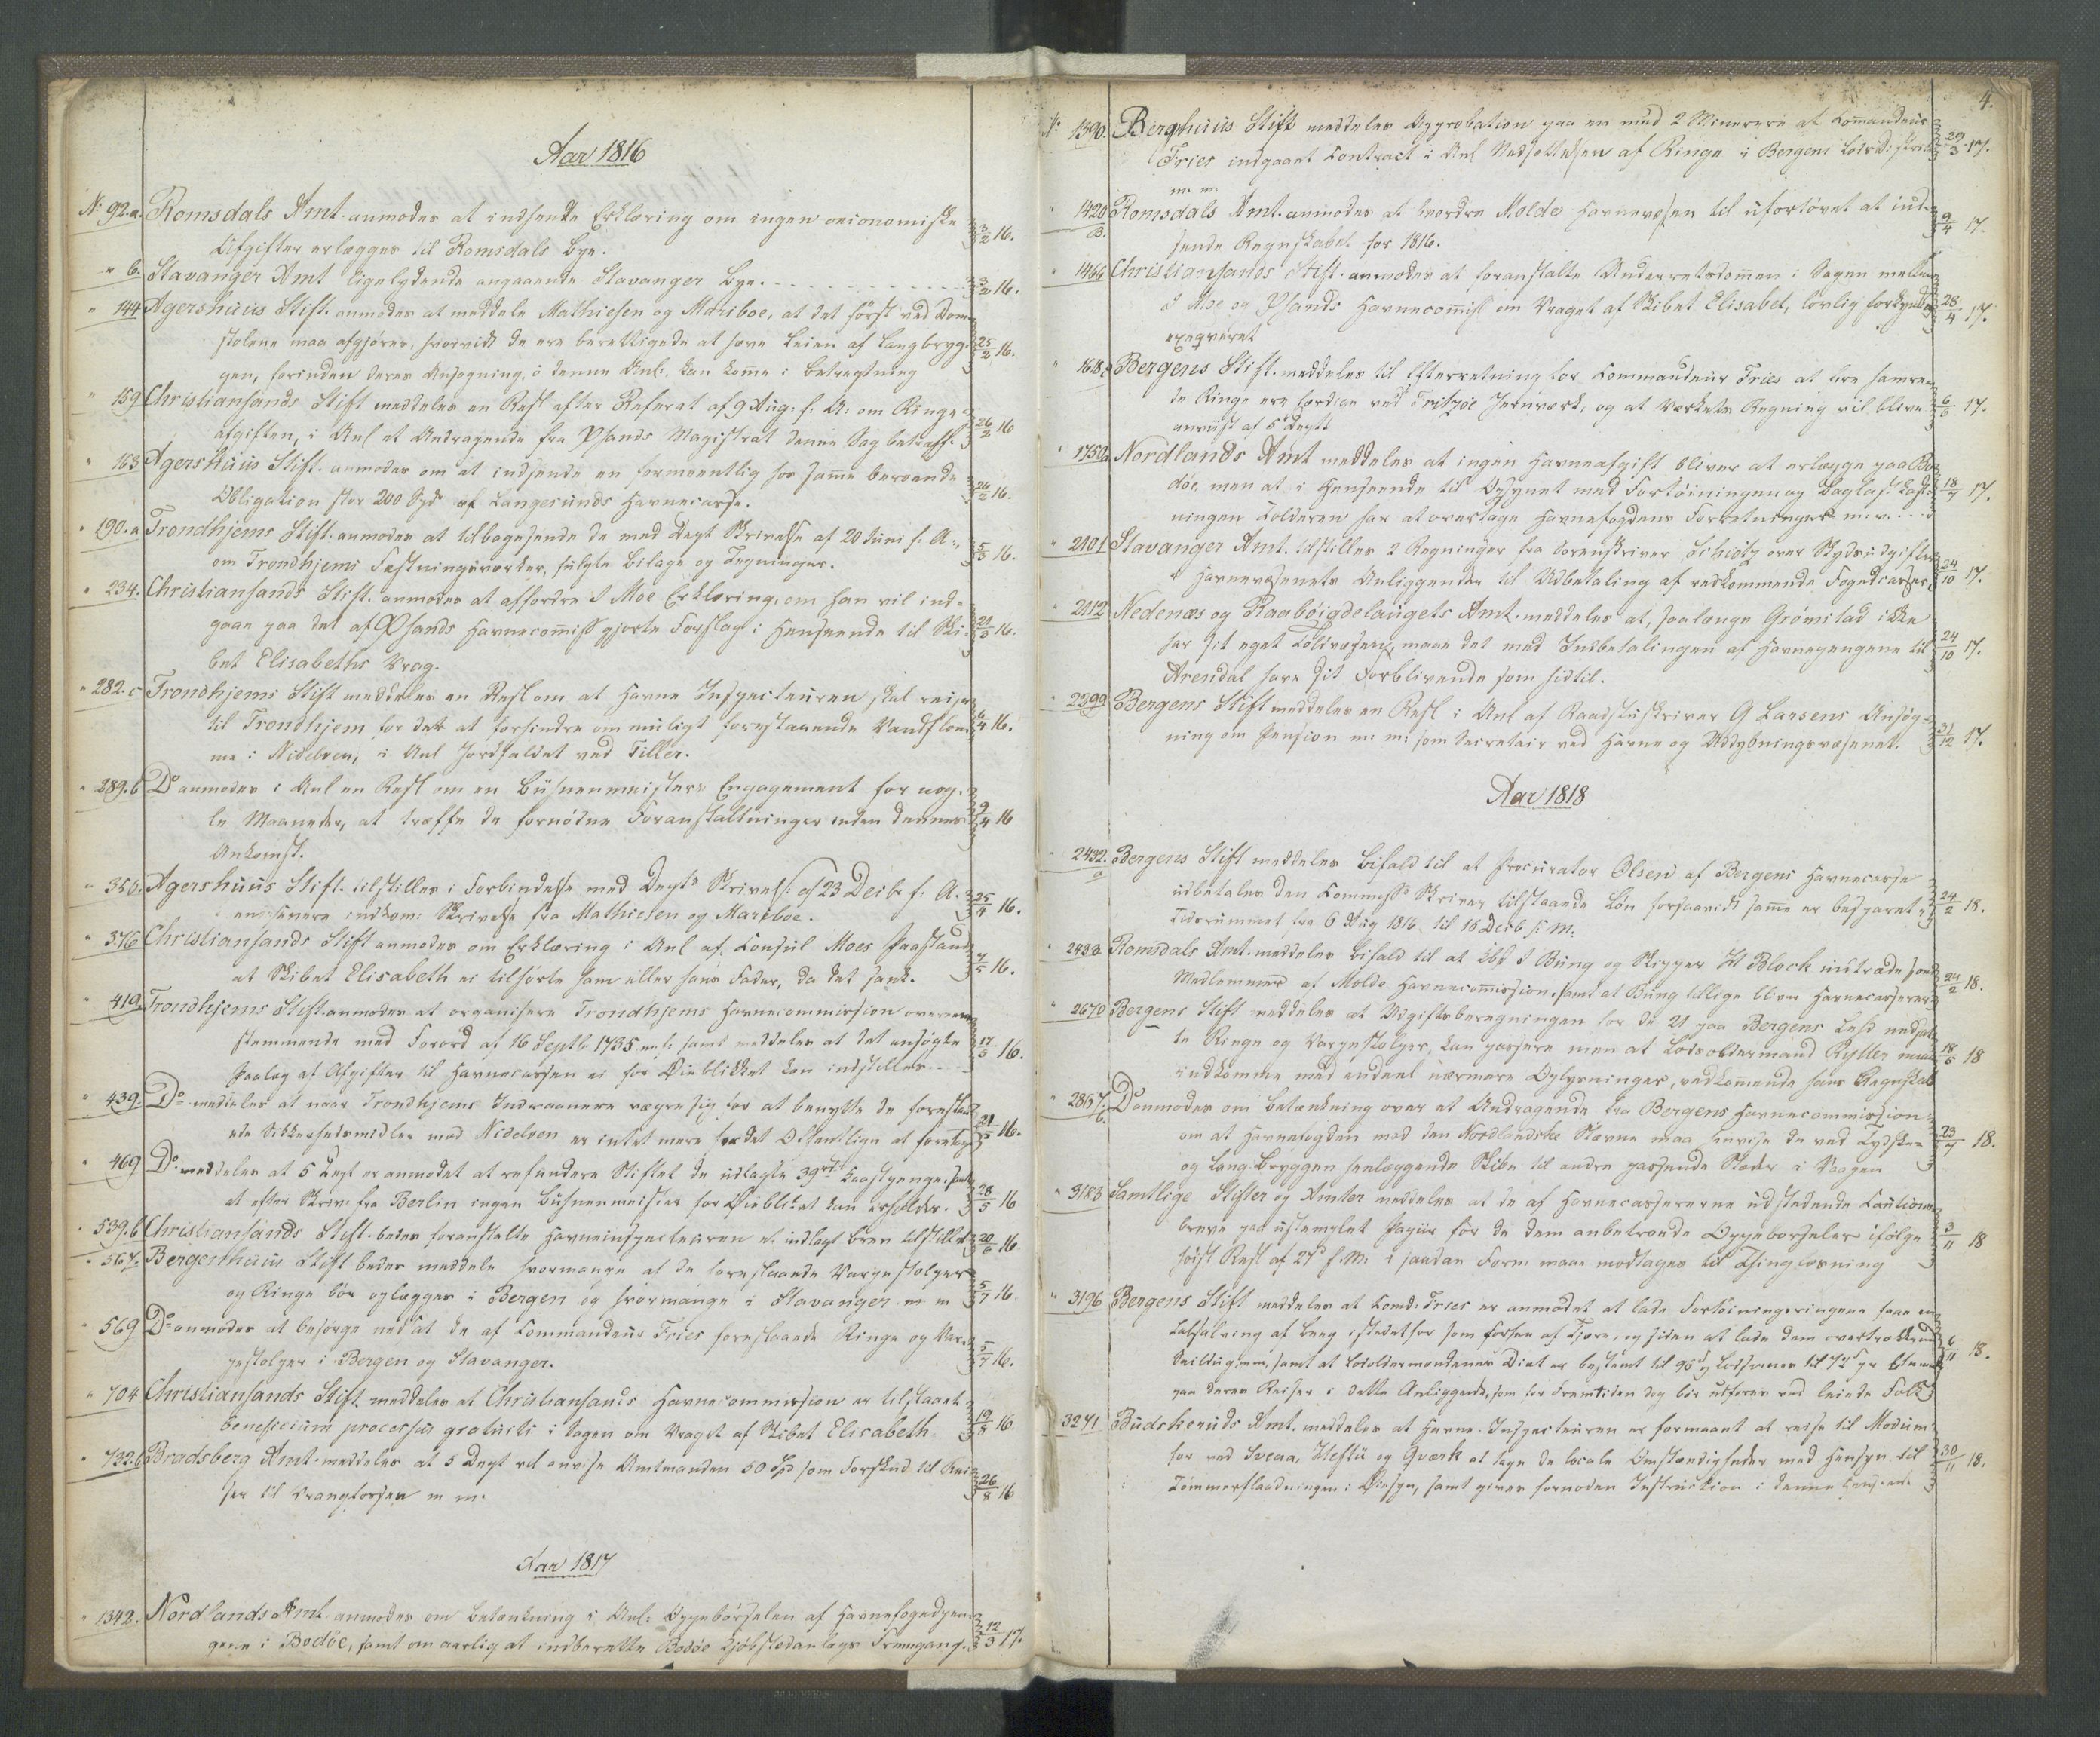 Aar 1816
No 92.a. Romsdals Amt. anmodes at indsende Erklæring om ingen oeconomiske 3/2 16.
Afgifter erlægges til Romsdals Bye.
" b. Stavanger Amt ligelydende angaaende Stavanger Bye. 3/2 16.
" 144 Agershuus Stift. anmodes at meddele Mathiesen og Mariboe, at det först ved Dom-
stolene maa afgjöres, hvorvidt de ere berettigede at hæve Leien af Langbryg- 25/2 16.
gen, forinden deres Ansögning, i denne Anl: kan komme i Betragtning
" 159 Christiansands Stift meddeles en Resl efter Referat af 9 Aug: f: A: om Ringe- 26/2 16
afgiften, i Anl et Andragende fra Xsands Magistrat denne Sag betræff.
" 163 Agershuus Stift. anmodes om at indsende en formeentlig hos samme beroende 26/2 16.
Obligation stor 200 Spd af Langesunds Havnecasse.
" 190.a Trondhjems Stift. anmodes at tilbagesende de med Degt Skrivelse af 20 Juni f: A:, 5/3 16.
om Trondhjems Fæstningsværker, fulgte Bilage og Tegninger.
" 234. Christiansands Stift. anmodes at affordre J Moe Erklæring, om han vil ind-
gaae paa det af Xsands Havnecommiss gjorte Forslag i Henseende til Ski- 21/3 16.
bet Elisabeths Vrag.
" 282.c Trondhjems Stift meddeles en Resl om at Havne Inspecteuren skal reise
til Trondhjem for det at forhindre om muligt forestaaende Vandflom- 6/4 16.
me i Nidelven, i Anl Jordfaldet ved Tiller.
" 289.b Do anmodes i Anl en Resl om en Buhnenmeisters Engagement for nog-
le Maaneder, at træffe de fornödne Foranstaltninger inden dennes 9/4 16
Ankomst.
" 356. Agershuus Stift. tilstilles i Forbindelse med Degts Skrivels: af 23 Decbr f: A. 25/4 16.
en senere indkom: Skrivelse fra Mathiesen og Mariboe.
" 376 Christiansands Stift anmodes om Erklæring i Anl af Consul Moes Paastand 7/5 16.
at Skibet Elisabeth ei tilhörte ham eller hans Fader, da det sank.
" 419. Trondhjems Stift. anmodes at organisere Trondhjems Havnecommission overeens-
stemmende med Forord af 16 Septbr 1735 samt meddeles at det ansögte 17/5 16.
Paalæg af Afgifter til Havnecassen ei for Öieblikket kan indstilles.
" 439. Do meddeles at naar Trondhjems Indvaanere vægre sig for at benytte de foreslaa-
ede Sikkerhedsmidler mod Nidelven er intet mere for det Offentlige at foretage 21/5 16.
" 469 Do meddeles at 5 Degt er anmodet at refundere Stiftet de udlagte 39 Kaastpenge, samt
at efter Skriv: fra Berlin ingen Buhnenmeister for Öieblikket kan erholdes. 28/5 16
" 539.b Christiansands Stift. bedes foranstalte Havneinspecteuren et indlagt Brev tilstillet 20/6 16
" 567. Bergenhuus Stift bedes meddele hvormange af de foreslaaede Varpestolper
og Ringe bör oplægges i Bergen og hvormange i Stavanger m m 5/7 16.
" 569 Do anmodes at besörge nedsat de af Commandeur Fries foreslaaede Ringe og Var-
pestolper i Bergen og Stavanger. 5/7 16.
" 704 Christiansands Stift meddeles at Christiansands Havnecommission er tilstaaet
beneficium processus gratuiti i Sagen om Vraget af Skibet Elisabeth 19/8 16
" 732.b Bradsberg Amt. meddeles at 5 Degt vil anvise Amtmanden 50 Spd som Forskud til Rei-
ser til Vrangforsen m m. 26/8 16
Aar 1817
" 1342. Nordlands Amt. anmodes om Betænkning i Anl: Oppebörselen af Havnefogedpen-
gene i Bodöe, samt om aarlig at indberette Bodöe Kjöbstedanlægs Fremgang. 12/3 17.
4.
No 1390. Bergenhuus Stift meddeles Approbation paa en med 2 Minerere af Commandeur
Fries indgaaet Contract i Anl Nedsættelsen af Ringe i Bergens Loddistrict 29/3 17.
m. m.
" 1420 B. Romsdals Amt. anmodes at beordre Molde Havnevæsen til ufortövet at ind-
sende Regnskabet for 1816. 9/4 17.
" 1466 Christiansands Stift. anmodes at foranstalte Underretsdommen i Sagen mellem
J Moe og Xsands Havnecommiss om Vraget af Skibet Elisabet, lovlig forkyndt 28/4 17.
exeqveret
" 1618. Bergens Stift. meddeles til Efterretning for Commandeur Fries at
de Ringe ere færdige ved Fritzöe Jernværk, og at Værkets Regning vil blive 6/6 17.
anviist af 5 Degt
" 1750. Nordlands Amt meddeles at ingen Havneafgift bliver at erlægge paa Bo-
döe men at i Henseende til Opsynet med Fortöiningen og Baglast Kast- 18/7 17.
ningen Tolderen har at overtage Havnefogdens Forretninger m. v.
" 2101 Stavanger Amt. tilstilles 2 Regninger fra Sorenskriver Schiötz over Skydsudgifter
i Havnevæsenets Anliggender til Udbetaling af vedkommende Fogedcasse. 24/10 17.
" 2012 Nedenæs og Raabôigdelaugets Amt. meddeles at, saalænge Grömstad ikke
har sit eget Toldvæsen, maae det med Indbetalingen af Havnepengene til 24/10 17.
Arendal have sit Forblivende som hidtil.
" 2299 Bergens Stift meddeles en Resl i Anl af Raadstuskriver G Larsens Ansög-
ning om Pension m: m: som Secretair ved Havne og Uddybningsvæsenet. 31/12 17.
Aar 1818
" 2432. a Bergens Stift meddeles Bifald til at Procurator Olsen af Bergens Havnecasse
udbetales den Commisss Skriver tilstaaede Lön forsaavidt samme er besparet i 24/2 18.
Tidsrummet fra 6 Aug 1816 til 18 Decb f: M:
" 2433 Romsdals Amt. meddeles Bifald til at J Bung og Skipper H Block indtræde som
Medlemmer af Molde Havnecommission, samt at Bung tillige bliver Havnecasserer 24/2 18.
" 2670 Bergens Stift meddeles at Udgiftsberegningen for de 21 paa Bergens nedsat-
te Ringe og Varpestolper, kan passere men at Lodsoldermand Rytter maa 18/5 18
indkomme med endeel nærmere Oplysninger, vedkommende hans Regnskab
" 2857. b. Do anmodes om Betænkning over et Andragende fra Bergens Havnecommission
om at Havnefogden med den Nordlandske Stævne maa henvise de ved Tydske- 23/7 18.
og Lang Bryggen henlæggende Skibe til andre passende Stæder i Vaagen
" 3183 Samtlige Stifter og Amter meddeles at de af Havnecassererne udstedende Cautions-
breve paa ustemplet Papiir for de dem anbetroede Oppeborseler ifölge 3/11 18
höist Resl af 27 f: M: i saadan Form maae modtages til Thinglæsning
" 3196 Bergens Stift meddeles at Comd: Fries er anmodet at lade Fortöiningsringene faae en
af Beeg istedetfor som forhen af Tjære, og siden at lade dem overtrække med
Seildug, samt at Lodsoldermandens Diet er bestemt til 96 s, Lodsernes til 72 s pr 6/11 18.
paa deres Reiser i dette Anliggende, som for Fremtiden dog bör udföres ved leiede Folk
" 3271 Budskeruds Amt. meddeles at Havne-Inspecteuren er formaaet at reise til Modum
for ved Sveaa, Heftu og Qværk at tage de locale Omstændigheder med Hensyn til 30/11 18.
Tömmerflaadningen i Öiesyn, samt given fornöden Instruction i denne Henseende